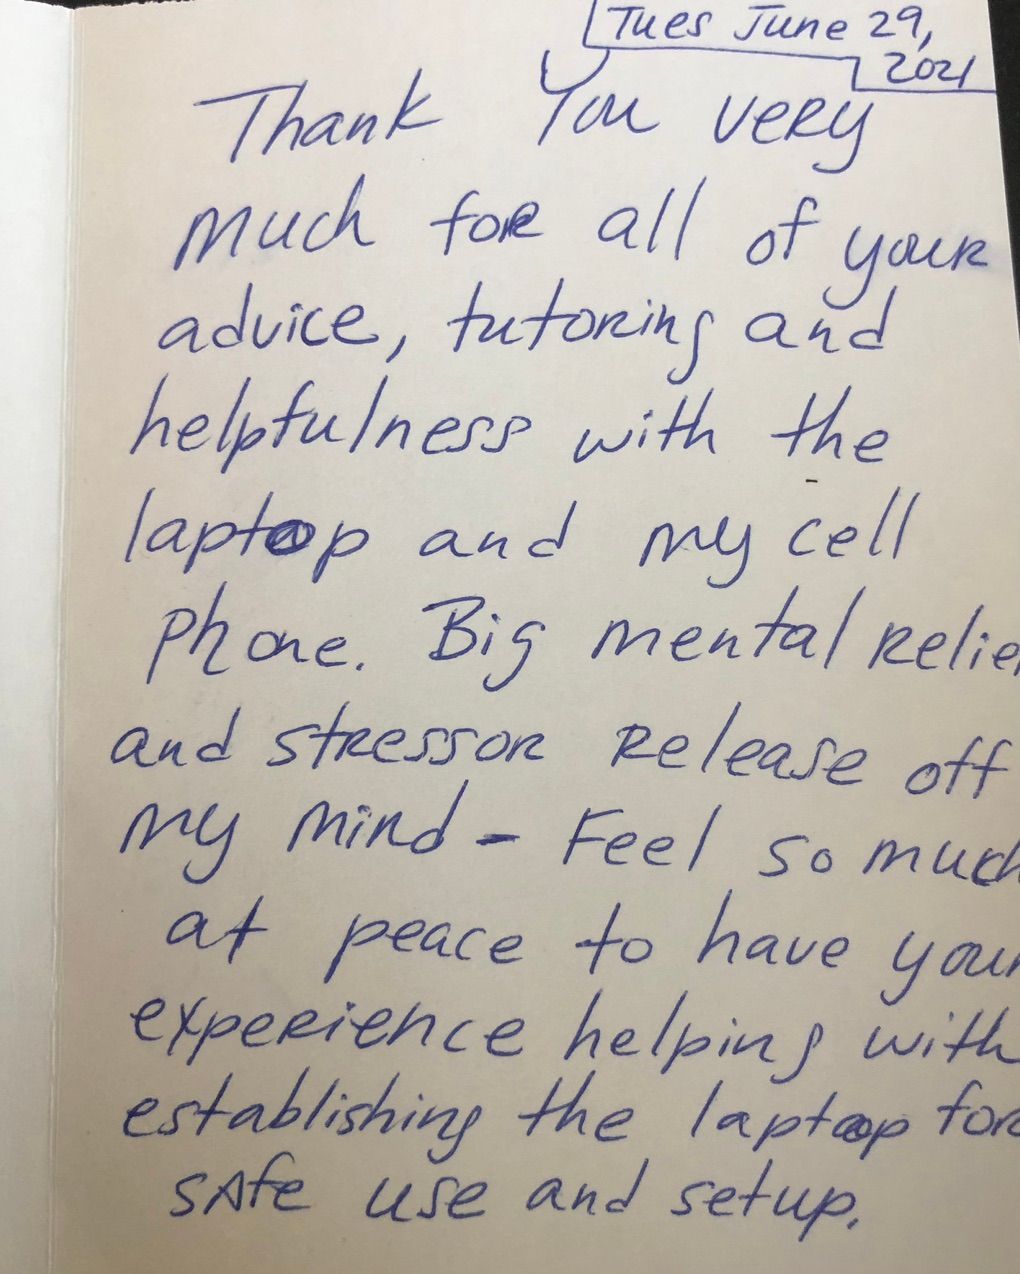 Tues June 29,
2021
Thank You very
much for all of your
advice, tutoring and
helpfulness with the
laptop and my cell
phone. Big mental Relie
and stressor Release off
my mind - Feel so much
at peace to have your
experience helping with
establishing the laptop for
safe use and setup.